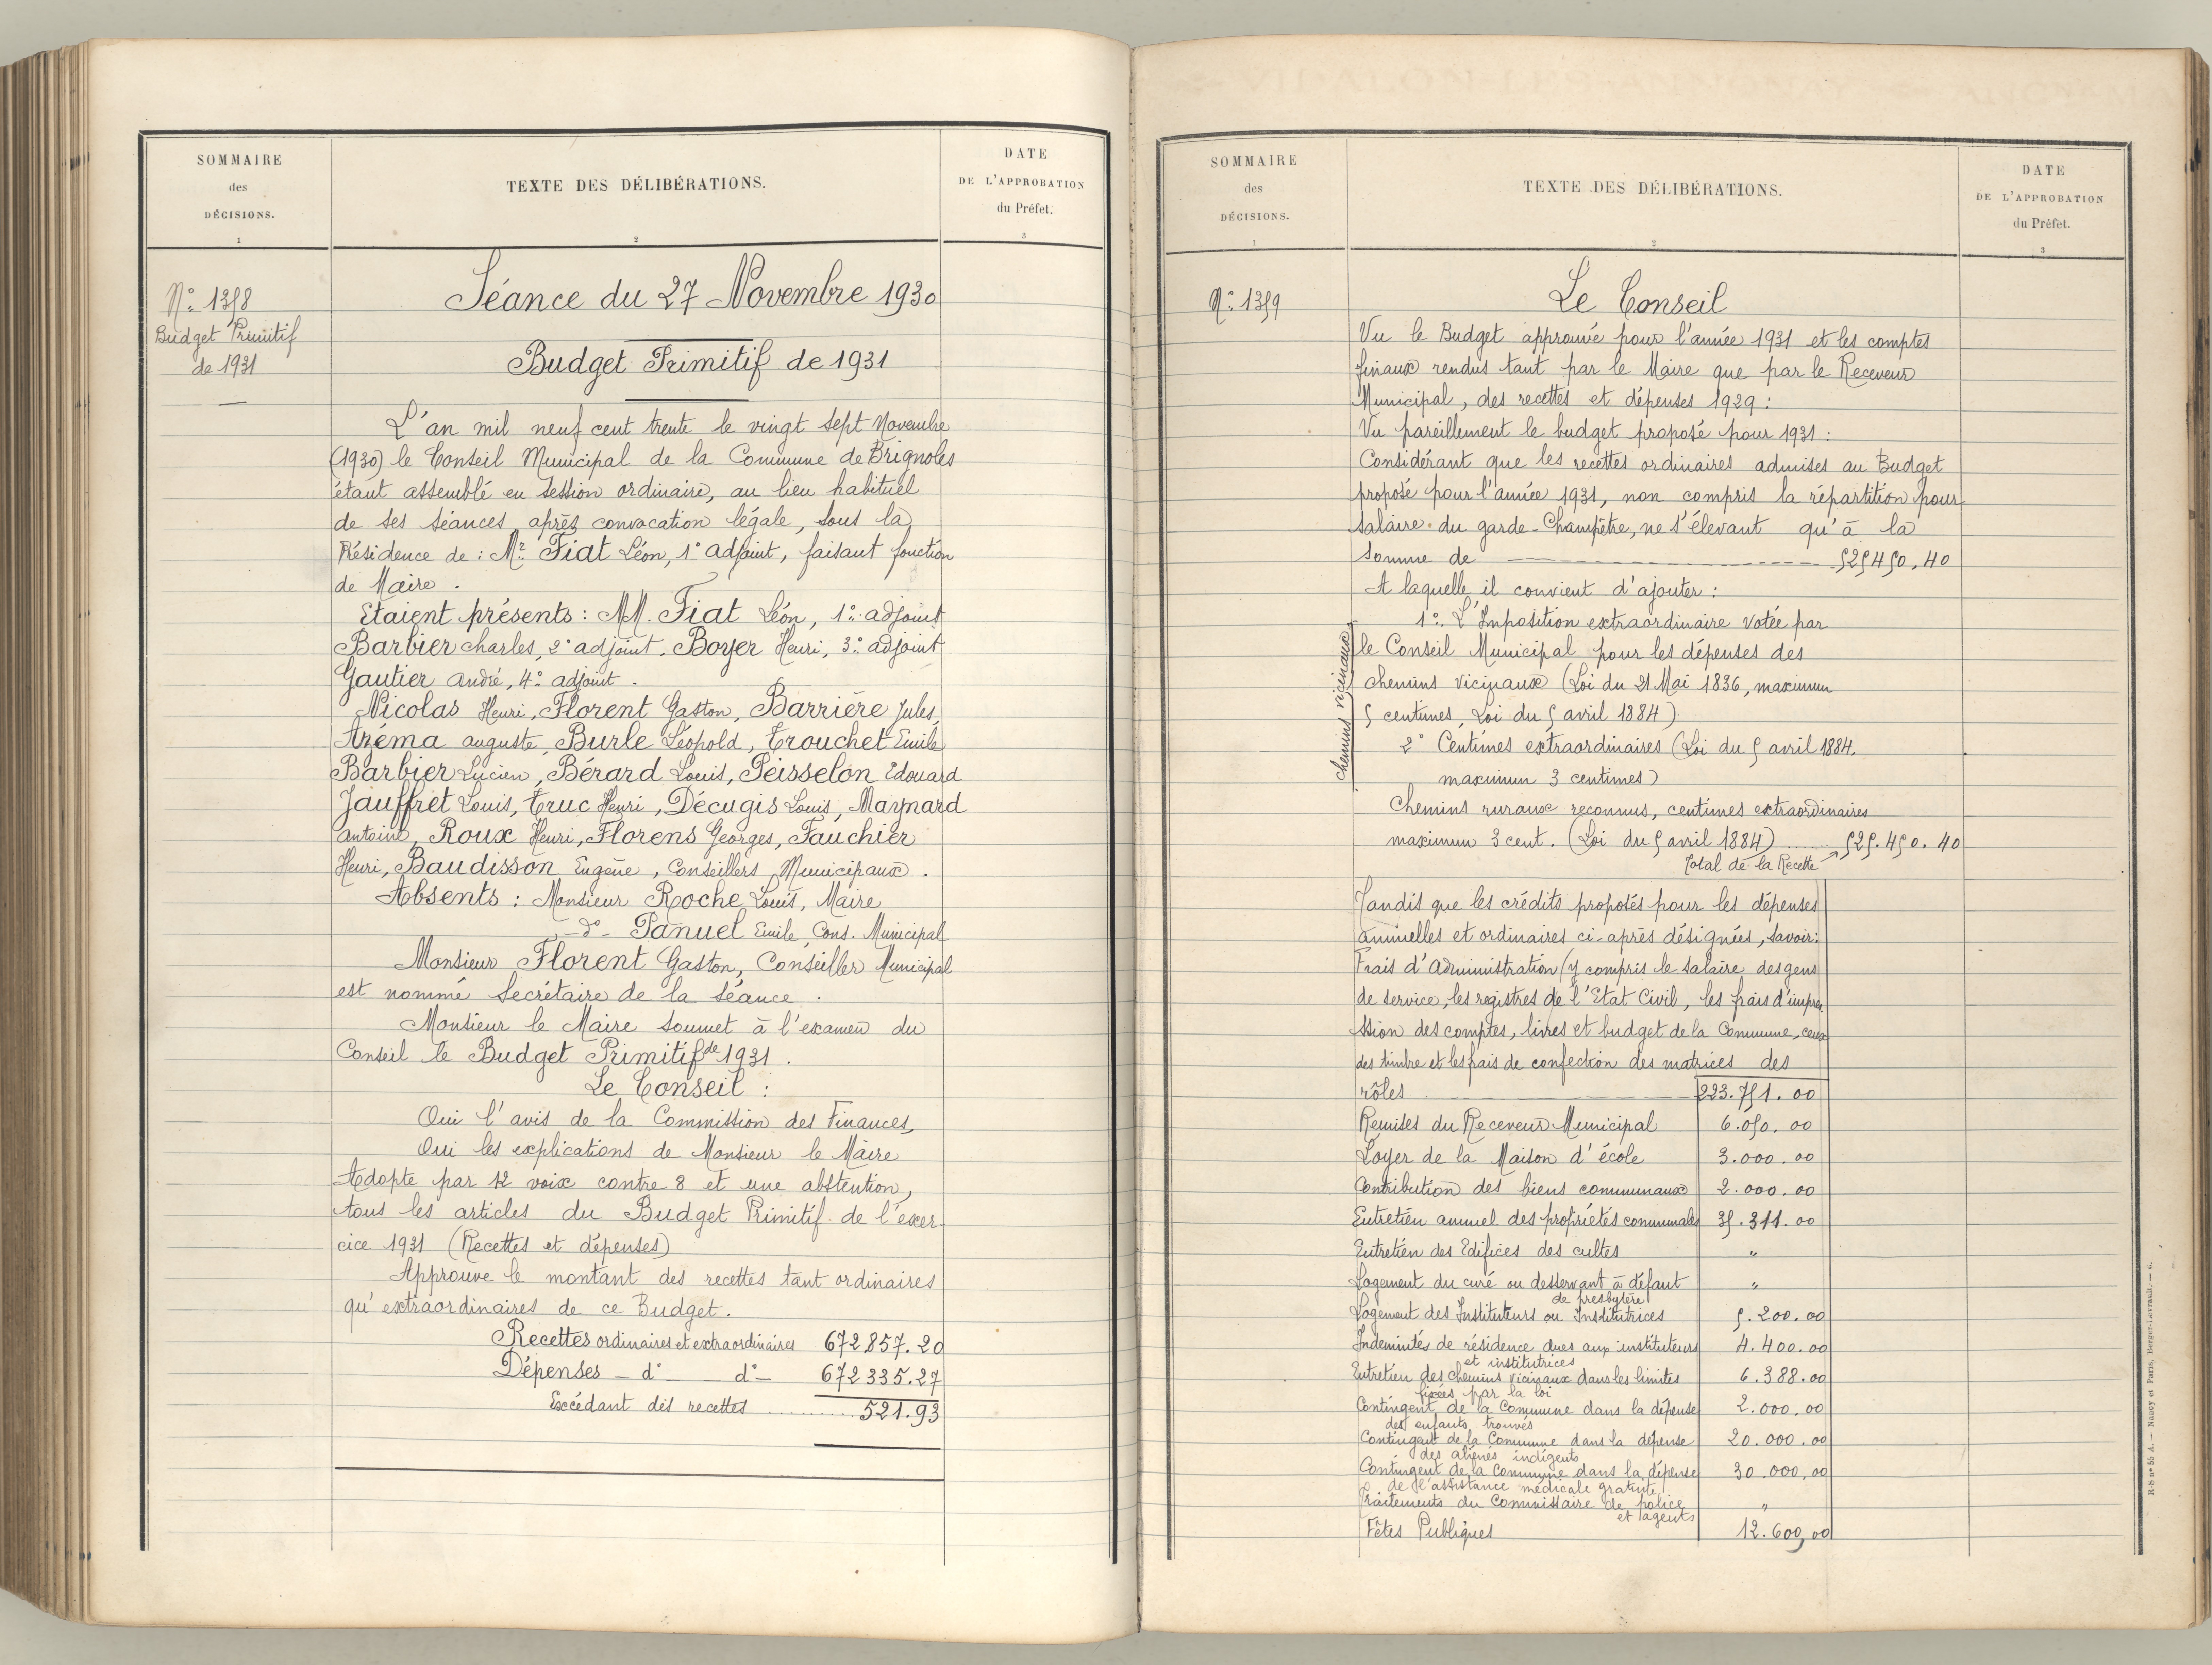 SOMMAIRE
des
DÉCISIONS.
1
TEXTE DES DÉLIBÉRATIONS.
2
DATE
DE L'APPROBATION
du Préfet.
3
N° 1358
Budget Primitif
de 1931
Séance du 27 Novembre 1930
Budget Primitif de 1931
L'an mil neuf cent trente le vingt sept Novembre
(1930) le Conseil Municipal de la Commune de Brignoles
étant assemblé en session ordinaire, au lieu habituel
de ses séances après convocation légale, sous la
Présidence de : Mr. Fiat Léon, 1° adjoint, faisant fonction
de Maire.
Etaient présents : MM. Fiat Léon, 1° adjoint
Barbier Charles, 2° adjoint. Boyer Henri, 3° adjoint
Gautier André, 4° adjoint.
Nicolas Henri, Florent Gaston, Barrière Jules,
Azéma Auguste, Burle Léopold, Trouchet Emile
Barbier Lucien, Bérard Louis, Peisselon Edouard
Jauffret Louis, Truc Henri, Décugis Louis, Maynard
Antoine, Roux Henri, Florens Georges, Fauchier
Henri, Baudisson Eugène, Conseillers Municipaux.
Absents : Monsieur Roche Louis, Maire
- d° - Panuel Emile, Cons. Municipal
Monsieur Florent Gaston, Conseiller Municipal
est nommé Secrétaire de la Séance.
Monsieur le Maire soumet à l'examen du
Conseil le Budget Primitif de 1931.
Le Conseil :
Oui l'avis de la Commission des Finances,
Oui les explications de Monsieur le Maire
Adopte par 12 voix contre 8 et une abstention,
tous les articles du Budget Primitif de l'exer-
cice 1931 (Recettes et dépenses)
Approuve le montant des recettes tant ordinaires
qu'extraordinaires de ce Budget.
Recettes ordinaires et extraordinaires 672.857.20
Dépenses - d° - d° - 672 335.27
Excédant des recettes ........ 521.93
SOMMAIRE
des
DÉCISIONS.
1
TEXTE DES DÉLIBÉRATIONS.
2
DATE
DE L'APPROBATION
du Préfet.
3
N° 1359
Le Conseil
Vu le Budget approuvé pour l'année 1931 et les comptes
finaux rendus tant par le Maire que par le Receveur
Municipal, des recettes et dépenses 1929 :
Vu pareillement le budget proposé pour 1931 :
Considérant que les recettes ordinaires admises au Budget
proposé pour l'année 1931, non compris la répartition pour
salaire du garde-Champêtre, ne s'élevant qu'à la
somme de ---- 525450,40
A laquelle il convient d'ajouter :
1° L'Imposition extraordinaire votée par
chemins vicinaux
le Conseil Municipal pour les dépenses des
chemins vicinaux (Loi du 21 Mai 1836, maximum
5 centimes, Loi du 5 avril 1884)
2° Centimes extraordinaires (Loi du 5 avril 1884.
maximum 3 centimes)
Chemins ruraux reconnus, centimes extraordinaires
maximum 3 cent. (Loi du 5 avril 1884) ...... 525.450.40
Total de la Recette
Tandis que les crédits proposés pour les dépenses
annuelles et ordinaires ci-après désignées, savoir :
Frais d'Administration (y compris le salaire des gens
de service, les registres de l'Etat Civil, les frais d'impre
ssion des comptes, livres et budget de la Commune, ceux
des timbre et les frais de confection des matrices des
rôles 223.751.00
Remises du Receveur Municipal 6.050.00
Loyer de la Maison d'école 3.000.00
Contribution des biens communaux 2.000.00
Entretien annuel des propriétés communales 35.311.00
Entretien des Edifices des cultes "
Logement du curé ou desservant à défaut "
de presbytère
Logement des Instituteurs ou Institutrices 5.200.00
Indemnités de résidence dues aux instituteurs 4.400.00
et institutrices
Entretien des chemins vicinaux dans les limites 6.388.00
fixées par la loi
Contingent de la Commune dans la dépense 2.000.00
des enfants trouvés
Contingent de la Commune dans la dépense 20.000.00
des aliénés indigents
Contingent de la Commune dans la dépense 30.000,00
de l'assistance médicale gratuite
Traitements du Commissaire de police "
et agents
Fêtes Publiques 12.600,00
H-S n° 55 A. — Nancy et Paris, Berger-Levrault. — 6.